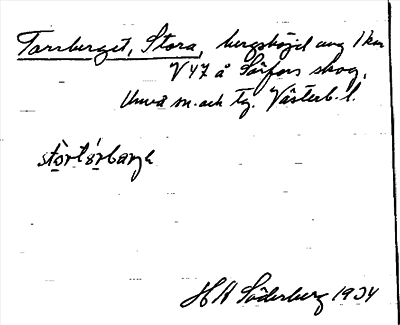 Torrberget, Stora, bergshöjd omg 1 km
V 47 å Sörfors skog,
Umeå sn. och tg. Västerb. l.
stòrtórbargə
H A Söderberg 1934